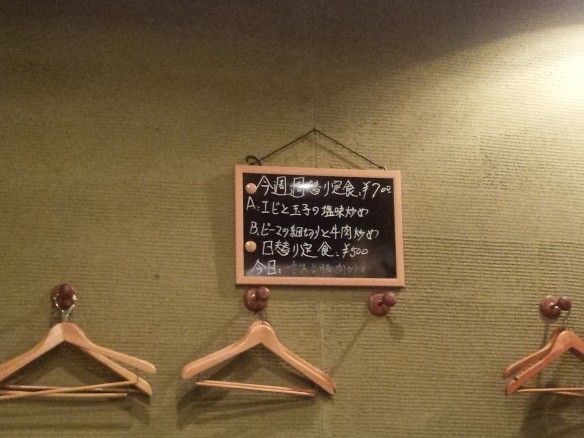 今週週替り定食.¥700
A.エビと玉子の塩味炒め
B.ピーマンの細切りと牛肉炒め
日替り定食.¥500
今日: